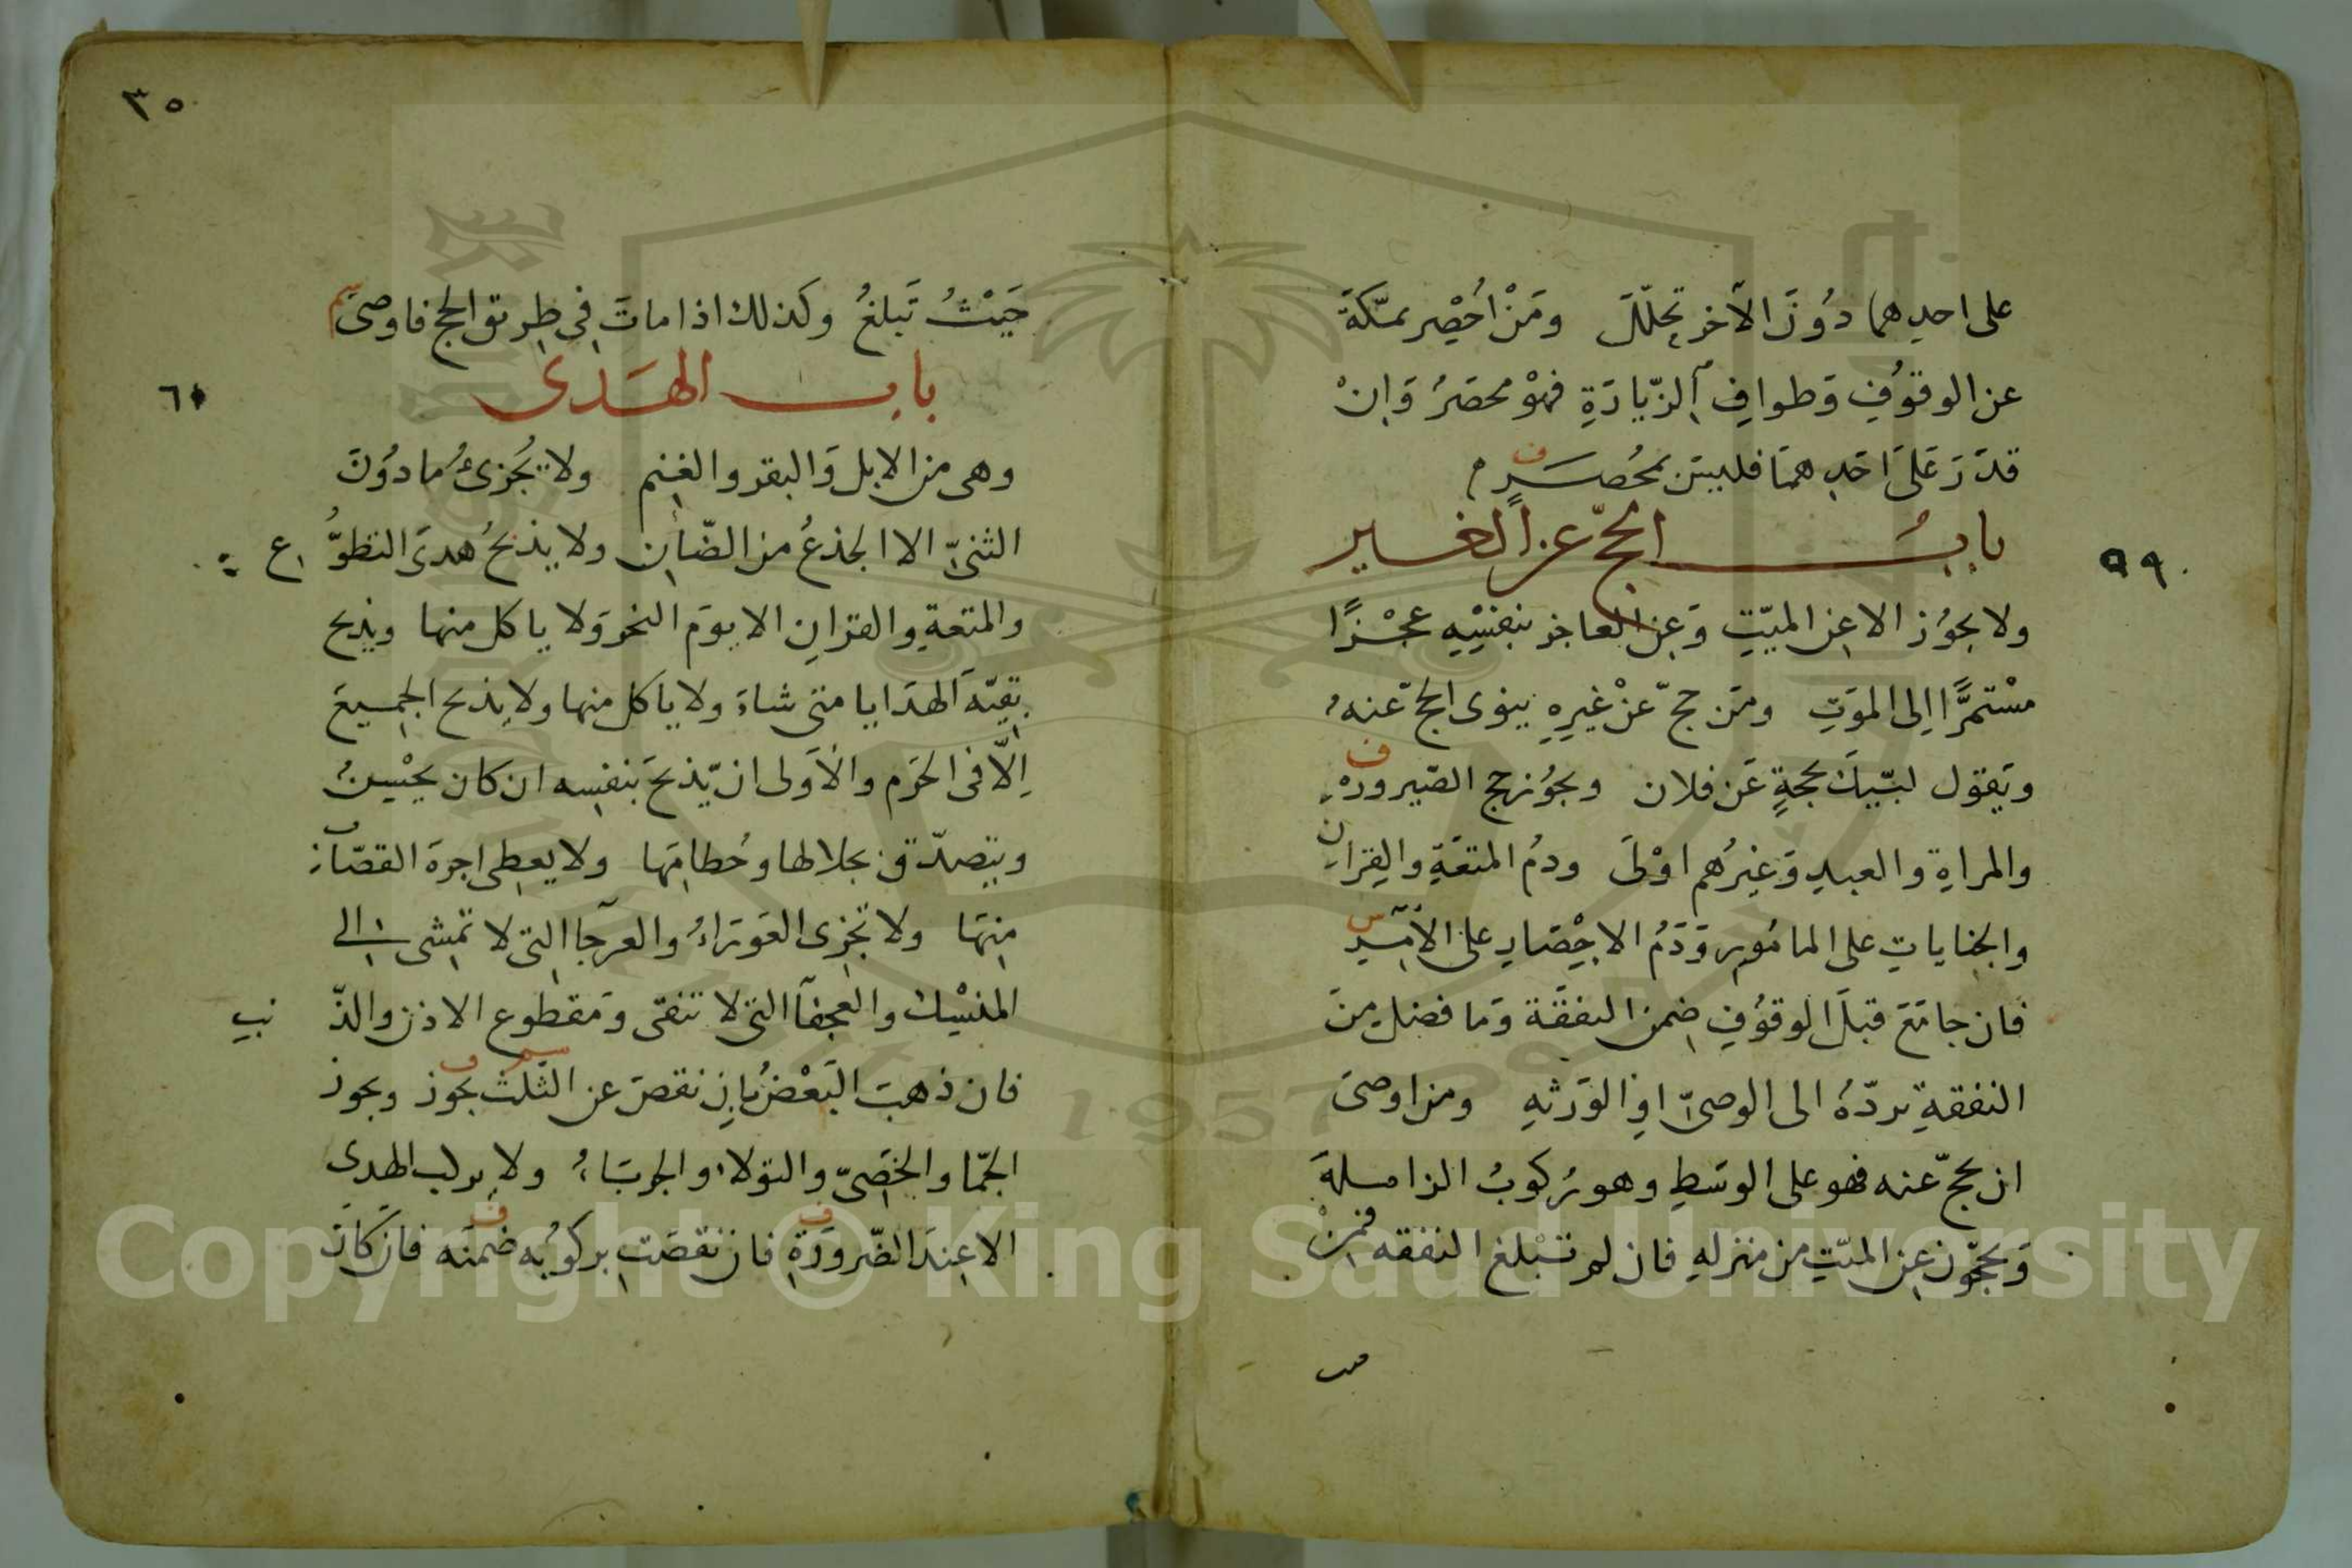 على احدهما دُونَ الآخر تحلّلَ ومَنْ اُحْصِر بمكّةَ
عن الوقوُفِ وَطوافِ الزّيارَةِ فهوْ محصَرُ وَانْ
قدَرَ عَلىَ اَحَدِ همَا فليسَ بمحُصَرٍ
بابُ الحجّ عن الغير
٩٩
ولا يجوُز الا عن الميّتِ وَعن العاجز بنفسِهِ عجْزًا
مسْتمرًّا اِلى الموَتِ ومَن حجّ عنْ غيرِهِ ينوى الحجّ عنهُ
ويَقوَل لبّيكَ بحجةٍ عَن فلان ويجوُز حج الصّيرورةِ
ف
والمراةِ والعبدِ وَغيرُهم اوْلىَ ودمُ المتعَةِ والقِرانِ
والجناياتِ على المامُورِ وَدَمُ الاحْصَارِ على الآمِرِ
س
فان جامَعَ قبلَ الوقوُفِ ضمن النفقَة وَما فضلَ منَ
النفقةِ يردّهُ الى الوصىّ اوِ الوَرثهِ ومن اوصىَ
ان يحجّ عنه فهو على الوسَطِ وهو رُكوبُ الزاملةَ
وَيحجّون عن الميّتِ من منزلهِ فان لم تَبْلغ النفقه فمنْ
٣٥
حَيْثُ تَبلغُ وكذلك اذا ماتَ فى طريق الحج فاوصىَ
سم
باب الهَدى
٦٠
وهى من الابل وَالبقر والغنم ولا يُجزىُ مادُونَ
الثنىّ الا الجذعُ من الضّأن ولا يذبحُ هدىَ التطوُّ ع
والمتعةِ والقرانِ الا يوَم النحر وَلا ياكل منها ويذبح
بقيّة الهدَايا متى شاءَ ولا ياكل منها ولا يذبح الجميعَ
اِلّا فى الحرَم والاَولى ان يّذبحَ بنفسِه ان كان يحْسِنُ
ويتصدّق بجلالها وخُطامِها ولا يعطى اجرةَ القصّاب
منهَا ولا تجزى العَورَاءُ والعرجَا التى لا تمشى الى
المنسِك والعجفَا التى لا تنقى وَمقطوع الاذن والذّ نبِ
فان ذهبَ البَعْضُ باِن نقصَ عن الثّلث يجوز ويجوز
سم ف
الجمّا والخصَىّ والثولاء والجربَاءُ ولا يركب الهدى
الا عندَ الضّرورَةِ فان نقصَت بركوبُه ضمنَه فان كانَ
ف ف